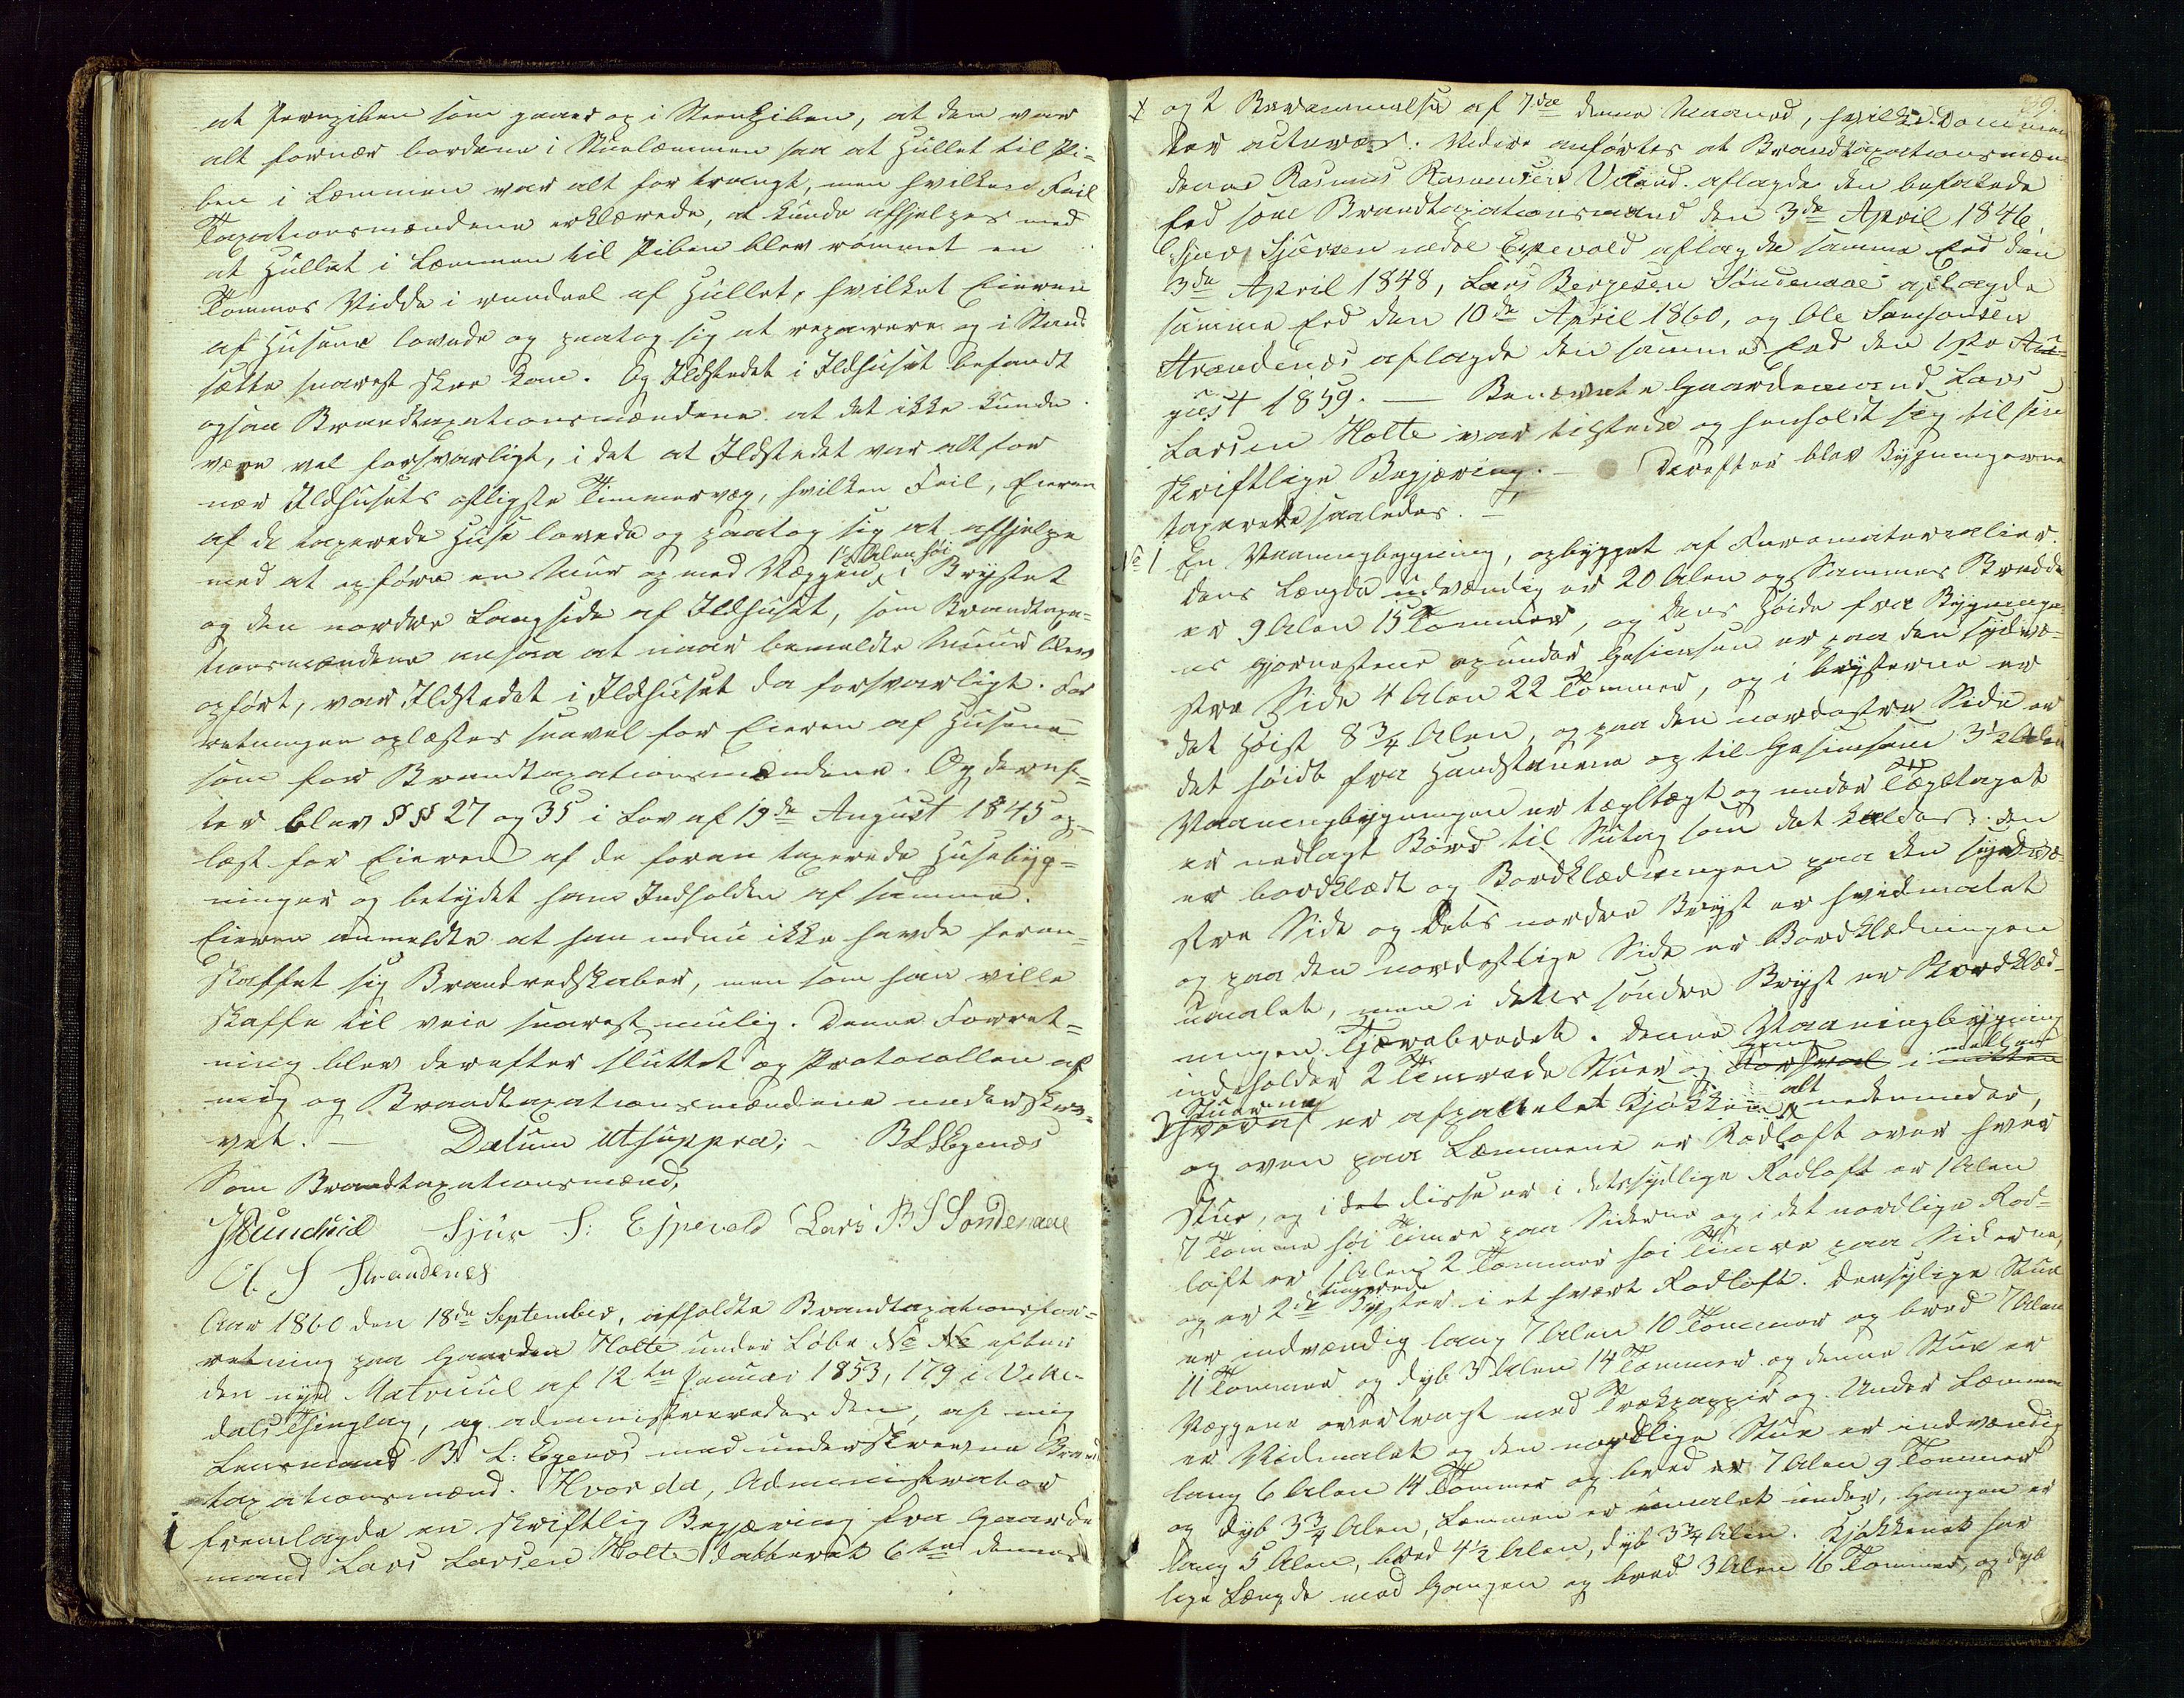 at Jernpiben som gaaer op i Steenpiben, at den var
alt fornær bordene i Stuelæmmen saa at Hullet til Pi-
ben i Læmmen var alt for trangt, men hvilken Feil
Taxationsmændene erklærede, at kunde afhjelpes med
at Hullet i Læmmen til Piben blev rømmet en
Tommes Vidde i rundeel af Hullet, hvilket Eieren
af Husene lovede og paatog sig at reparere og i Stand
sætte snarest skee kan. Og Ildstedet i Ildhuset befandt
ogsaa Brandtaxationsmændene at det ikke kunde
være vel forsvarligt, i det at Ildstedet var alt for
nær Ildhusets østligste Timmervæg, hvilken Feil, Eieren
af de taxerede Huse lovede og paatog sig at afhjelpe
1½ Alen høi
med at opføre en Muur op med Væggen i Brystet
og den nordre Langside af Ildhuset, som Brandtaxa-
tionsmændene ansaa at naar bemeldte Muur blev
opført, var Ildstedet i Ildhuset da forsvarligt. For
retningen oplæstes saavel for Eieren af Husene
som for Brandtaxationsmændene. Og deref-
ter blev §§ 27 og 35 i Lov af 19de August 1845 op-
læst for Eieren af de foran taxerede Husebyg-
ninger og betydet ham Indholden af samme.
Eieren anmeldte at han endnu ikke havde foran-
skaffet sig Brandredskaber, men som han ville
skaffe til veie snarest mulig. Denne Forret-
ning blev derefter sluttet og Protocollen af
mig og Brandtaxationsmændene underskre-
vet. — Datum utsuppra; - B L Egenæs
Som Brandtaxationsmænd,
Sjur S: Espevold Lars B S Søndenaae
O. S Strandenes
Aar 1860 den 18de September, afholdte Brandtaxationsfor-
retning paa Gaarden Holte under Løbe No No efter
den nye Matrikul af 12te Januar 1853, 179 i Vike-
dals Thinglag, og administreredes den, af mig
Lensmand B L: Egenæs med underskrevne Brand
taxationsmænd. Hvor da, Administrator
fremlagde en skriftlig Begjæring fra Gaarde
mand Lars Larsen Holte datteret 6te dennes
x og 2 Bevrammelse af 7de denne Maaned, hvilke Documen
ter acteres. Videre anførtes at Brandtaxationsmæn
denes Rasmus Rasmussen Veland aflagde den befalede
Eed som Brandtaxationsmand den 3de April 1846,
Sjur Sjursen nedre Espevold aflagde samme Eed den
3de April 1848, Lars Bergesen Søndenaae aflagde
samme Eed den 10de April 1860, og Ole Samsonsen
Strandenæs aflagde den samme Eed den 1ste Au-
gust 1859. — Benævnte Gaardemand Lars
Larsen Holte var tilstede og henholdt sig til sin
skriftlige Begjæring. — Derefter blev Bygningerne
taxerede saaledes. —
No 1 En Vaaningbygning, opbygget af Furematerialier.
dens Længde udvændig er 20 Alen og Sammes Bredde
er 9 Alen 15 Tommer, og dens Høide fra Bygninge-
ns hjørnestene op under Gesimsen er paa den sydve-
stre Side 4 Alen 22 Tommer, og i brysterne er
det Høist 8¾ Alen, og paa den nordostre Side er
det høide fra Handstenene og til Gesimsene 3½ Alen
Vaaningbygningen er tægltægt og under Tægltaget
er nedlagt Bord til Sutag som det kaldes. den
er bordklædt og Bordklædningen paa den sydve-
stre Side og dets nordre Bryst er hvidmalet
og paa den nordostlige Side er Bordklædningen
umalet, men i dettes søndre Bryst er Bordklæd-
ningen Tjærebredet. Denne Vaaningbygning
Gang mellem
indeholder 2 Timrede Stuer og Forsval i mitten
Stuerne alt
Hvoraf er afpanelet Kjøkken, nedenunder,
og oven paa Læmmene er Rødloft over hver
Stue, og i det disse er i det sydlige Rodloft er 1 Alen
7 Tomme høi Timre paa Siderne og i det nordlige Rod-
loft er 1 Alen 2 Tommer høi Timre paa Siderne,
timrede
og er 2de Bryster i et hvært Rodloft. Den sydlige Stue
er indvændig lang 7 Alen 10 Tommer og bred 7 Alen
11 Tommer og dyb 3 Alen 14 Tommer og denne Stue er
Væggene overtragt med Trækpappir og Under Læmmen
er Rødmalet og den nordlige Stue er indvændig
lang 6 Alen 14 Tommer og bred er 7 Alen 9 Tommer
og dyb 3¾ Alen, Læmmen er umalet under, Gangen er
lang 5 Alen, bred 4½ Alen, dyb 3¾ Alen. Kjøkkenet har
lige Længde med Gangen og bred 3 Alen 16 Tommer, og dyb